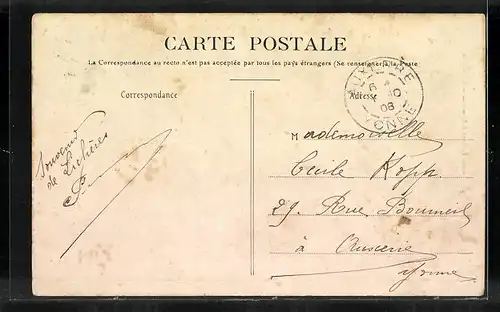 CARTE POSTALE
La Correspondance au recto n'est pas acceptée par tous les pays étrangers (Se renseigner à la Poste
Correspondance
Adresse
AUXERRE
YONNE
08
Souvenir
de Lichères
Mademoiselle
Cécile Kopp
29. Rue
à
Yonne